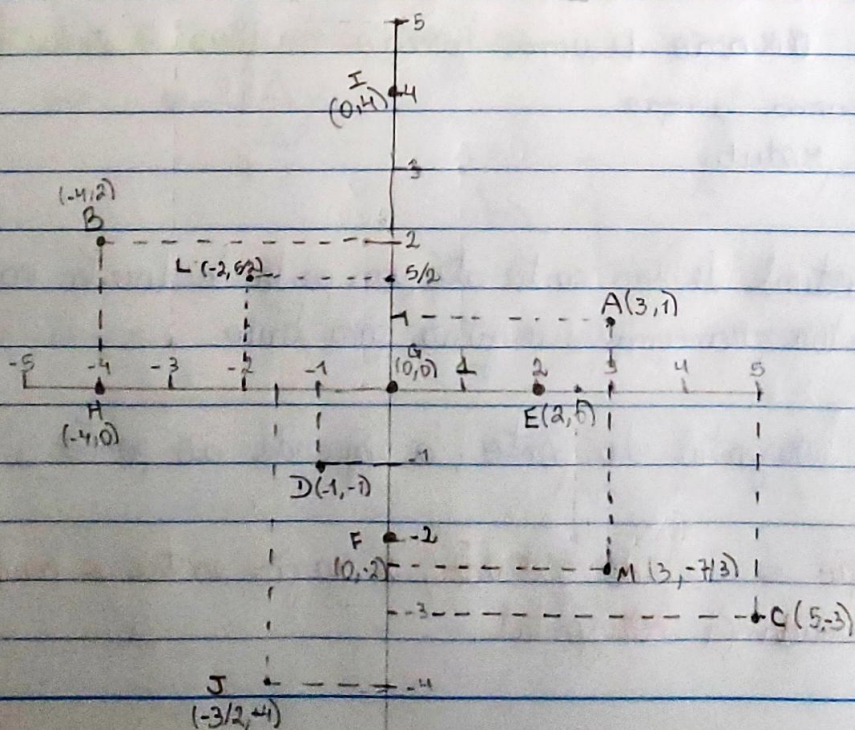 5
I
(0,4) 4
3
(-4,2)
B 2
L (-2,5/2) 5/2
A(3,1)
1
-5 -4 -3 -2 -1 G 1 2 3 4 5
(0,0)
H E(2,0)
(-4,0)
-1
D(-1,-1)
F -2
(0,-2) M (3,-7/3)
-3 C (5,-3)
J -4
(-3/2,-4)